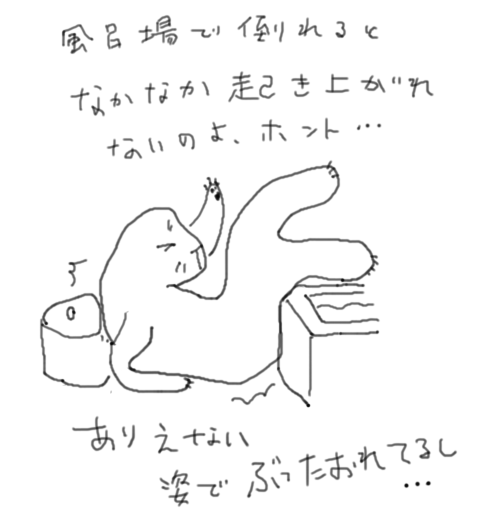 風呂場で倒れると
なかなか起き上がれ
ないのよ、ホント…
ありえない
姿でぶったおれてるし
…